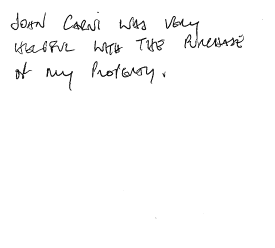 JOHN CARNI WAS VERY
HELPFUL WITH THE PURCHASE
OF MY PROPERTY.